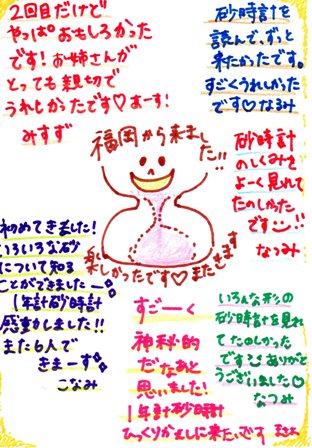 2回目だけど
やっぱおもしろかった
です！お姉さんが
とっても親切で
うれしかったです♡あーす！
みすず
砂時計を
読んで、ずっと
来たかったです。
すごくうれしかった
です♡なるみ
福岡から来ました!!
楽しかったです♡またきます
砂時計
のしくみを
よーく見れて
たのしかった
です!!
なつみ
初めてきました！
いろいろな砂
について知る
ことができましたー。
1年計砂時計
感動しました!!
また6人で
きまーす。
こなみ
すごーく
神秘的
だなあと
思いました！
1年計砂時計
ひっくりかえしに来たいです
いろんな形の
砂時計を見れ
てたのしかった
ですありがと
うございました♡
なつみ